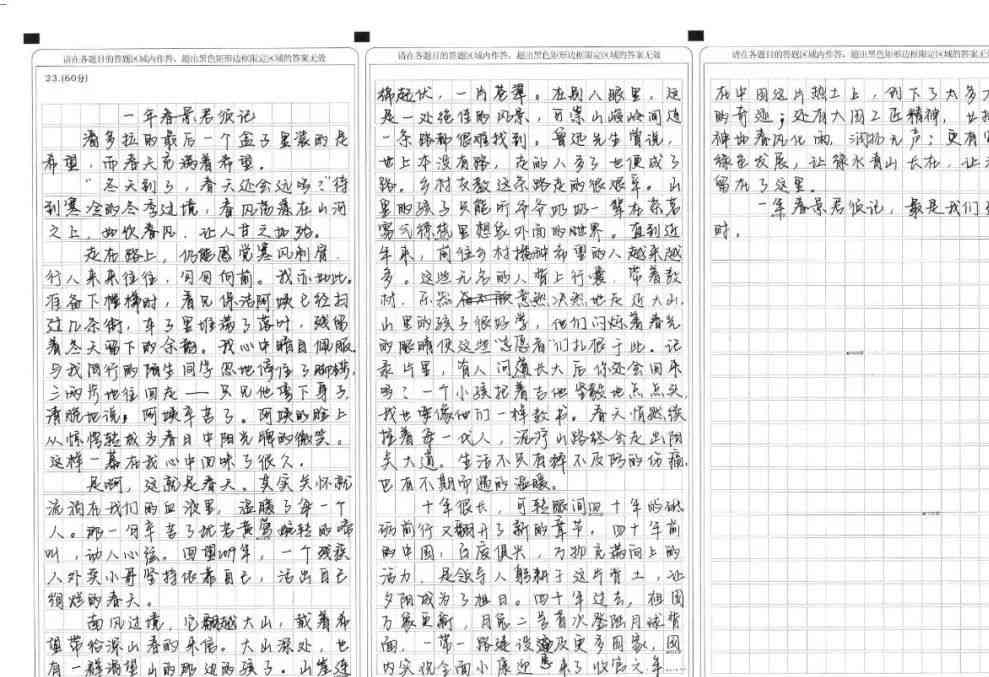 请在各题目的答题区域内作答，超出黑色矩形边框限定区域的答案无效
23.(60分)
一年春景君很记
潘多拉的最后一个盒子里装的是
希望，而春天充满着希望。
“冬天到了，春天还会远吗？”待
到寒冷的冬季过境，春风荡漾在山河
之上，如饮春风，让人甘之如饴。
走在路上，仍能感觉寒风刺骨，
行人来来往往，匆匆向前。我亦如此。
准备下楼梯时，看见保洁阿姨已经扫
过几条街，车子里堆满了落叶，残留
着冬天留下的余韵。我心中暗自佩服，
与我同行的陌生同学忽地停住了脚步，
三两步地往回走——只见他弯下身子，
清脆地说：阿姨辛苦了。阿姨的脸上
从惊愕转成为春日中阳光般的微笑。
这样一幕在我心中回味了很久。
是啊，这就是春天。其实关怀就
流淌在我们的血液里，温暖了每一个
人。那一句辛苦了犹若黄莺婉转的啼
叫，动人心弦。回望2019年，一个残疾
人外卖小哥坚持依靠自己，活出自己
绚烂的春天。
面风过境，它翻越大山，载着希
望带给深山春的来信。大山深处，也
有一群渴望山的那边的孩子。山峦连
请在各题目的答题区域内作答，超出黑色矩形边框限定区域的答案无效
绵起伏，一片苍翠。在别人眼里，这
是一处绝佳的风景，可崇山峻岭间连
一条路都很难找到。鲁迅先生曾说，
世上本没有路，走的人多了也便成了
路。乡村支教这条路走的很艰辛。山
里的孩子只能听爷爷奶奶一辈在茶茗
中想象外面的世界。直到近
年来，前往乡村播种希望的人越来越
多。这些无名的人背上行囊，带着教
材，毅然决然地走进大山，
山里的孩子很好学，他们闪烁着春光
的眼睛使这些志愿者们扎根于此。记
录片里，有人问道长大后你还会回来
吗？一个小孩抱着吉他坚毅地点点头，
我也要像他们一样教书。春天悄然续
接着每一代人，泥泞山路终会走出阳
关大道。生活不只有猝不及防的伤痛，
也有不期而遇的温暖。
十年很长，可转眼间四十年的砥
砺前行又翻开了新的章节，四十年前
的中国，百废俱兴，万物充满向上的
活力，是领导人躬耕于这片青土，让
夕阳成为了旭日。四十年过去，祖国
万象更新，月宫二号首次登陆月球背
面，一带一路建设遍及更多国家，国
内实现全面小康迎来了收官之年……
请在各题目的答题区域内作答，超出黑色矩形边框限定区域的答案无
在中国这片热土上，刻下了太多
的奇迹；还有大国工匠精神，
神如春风化雨，润物无声；更有
绿色发展，让绿水青山长在，让
留在了这里。
一年春景君很记，最是我们
时。